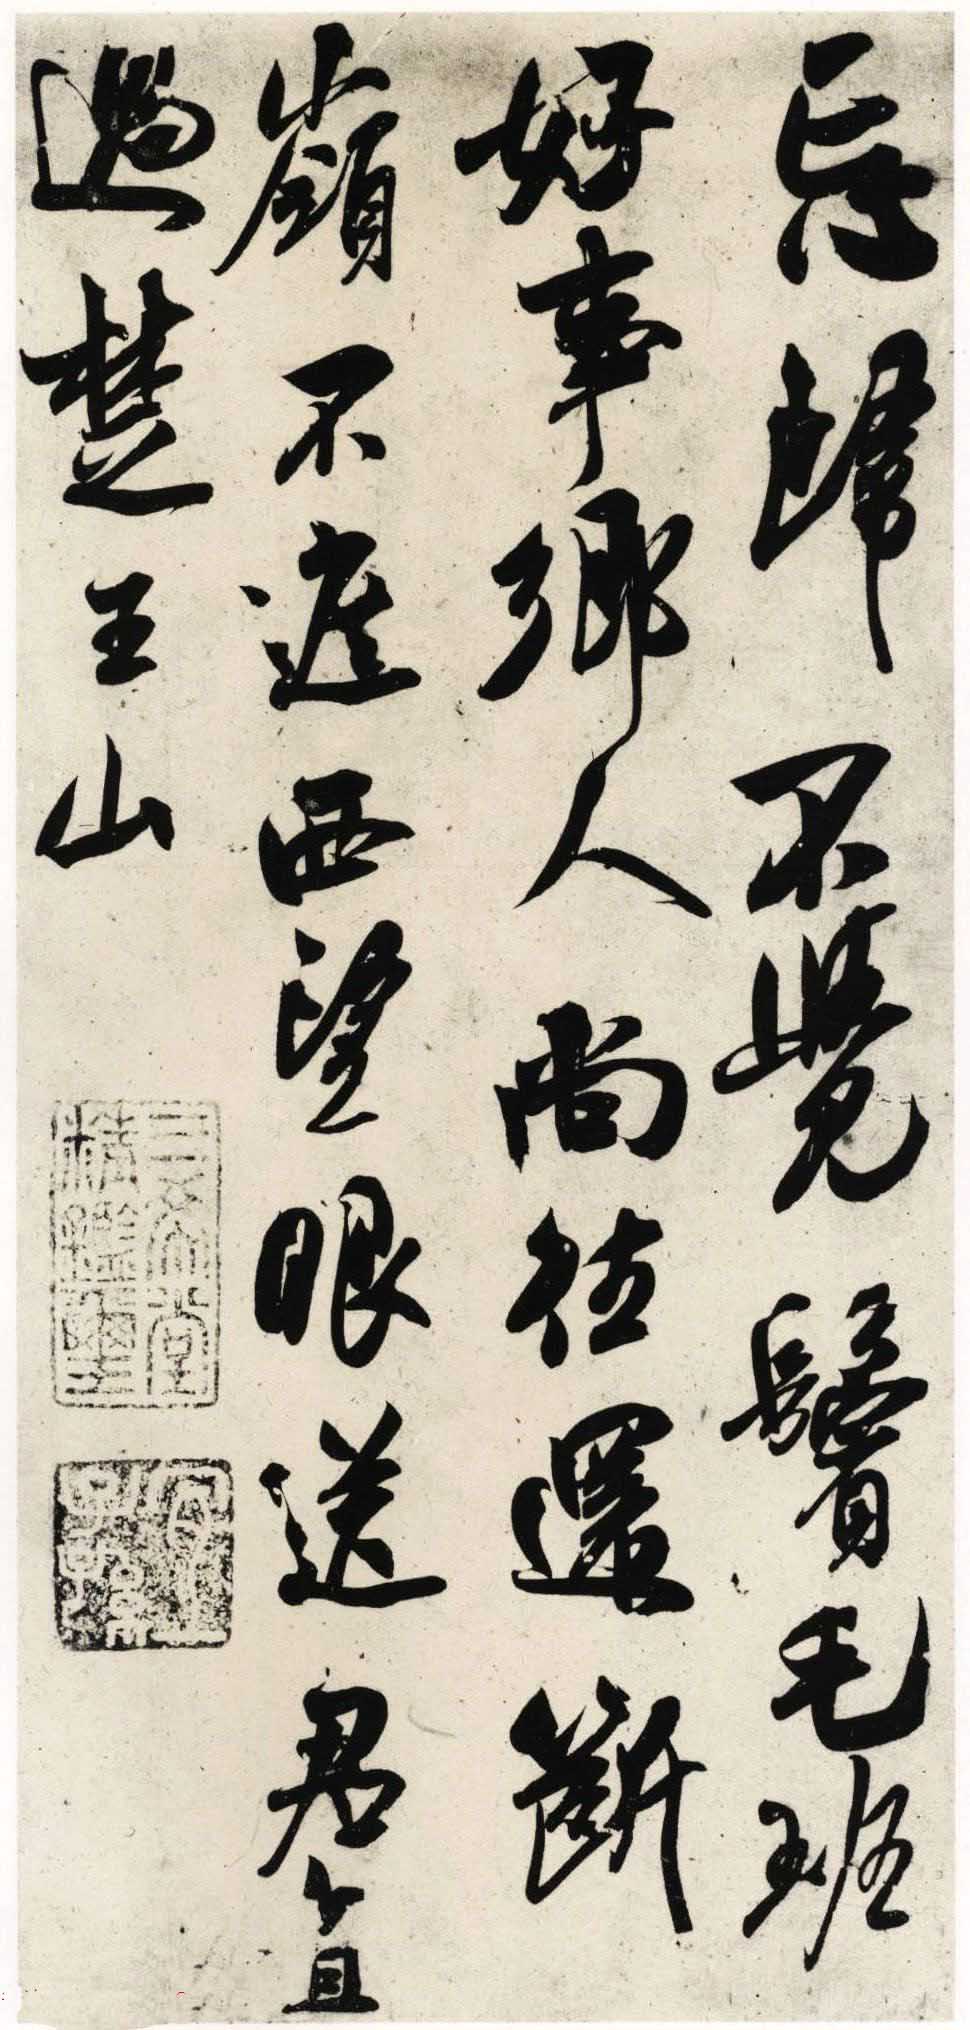 忘歸不覺鬢毛班
好事鄉人尚往還斷
嶺不遮西望眼送君直
過楚王山
三希堂
精鑑璽
宜子
孫